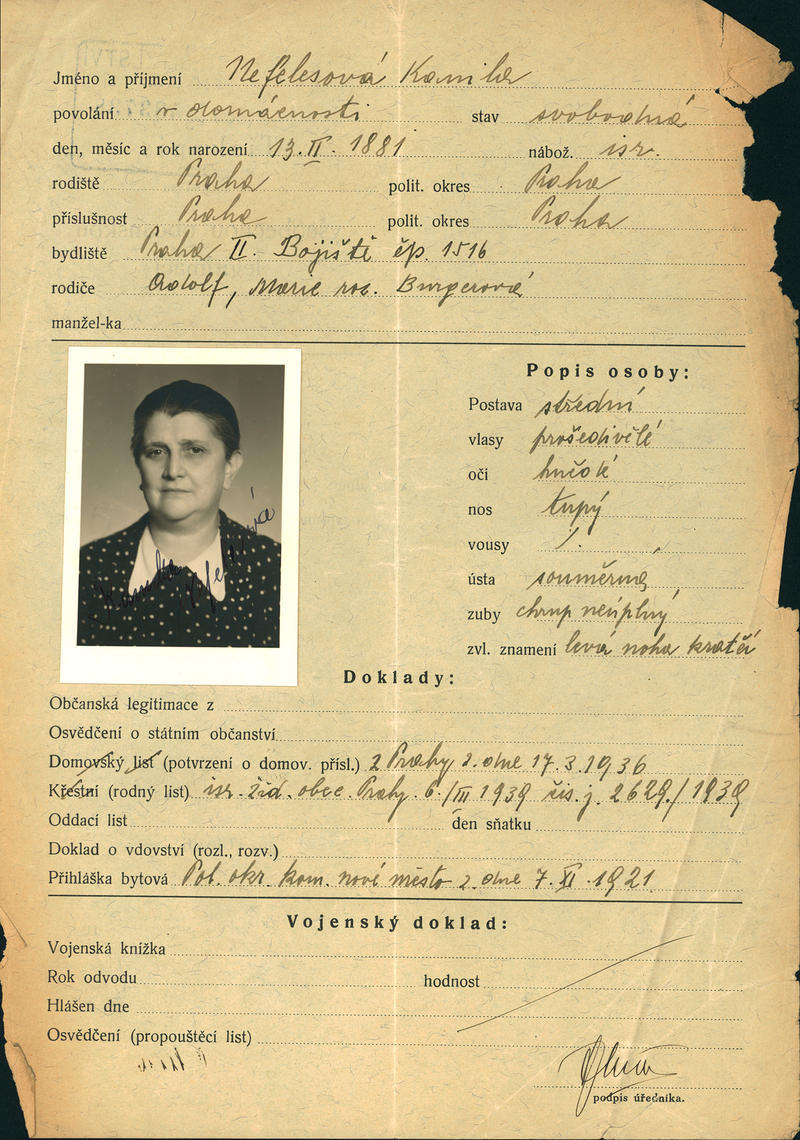 Jméno a příjmení Nefelesová Kamila
povolání v domácnosti stav svobodná
den, měsíc a rok narození 13. II. 1881 nábož. isr.
rodiště Praha polit. okres Praha
příslušnost Praha polit. okres Praha
bydliště Praha II. Bojiště čp. 1516
rodiče Adolf, Marie roz. Burgerová
manžel-ka
Popis osoby:
Postava střední
vlasy prošedivělé
oči
nos tupý
vousy /.
ústa souměrná
zuby chrup neúplný
zvl. znamení levá noha kratší
Doklady:
Občanská legitimace z
Osvědčení o státním občanství
Domovský list (potvrzení o domov. přísl.) z Prahy z. dne 17.3.1936
Křestní (rodný list) isr. žid. obec. Prahy 6./III 1939 čís. j. 2629./1939
Oddací list den sňatku
Doklad o vdovství (rozl., rozv.)
Přihláška bytová Pol. okr. kom. nové město z. dne 7. XI. 1921
Vojenský doklad:
Vojenská knížka
Rok odvodu hodnost
Hlášen dne
Osvědčení (propouštěcí list)
podpis úředníka.